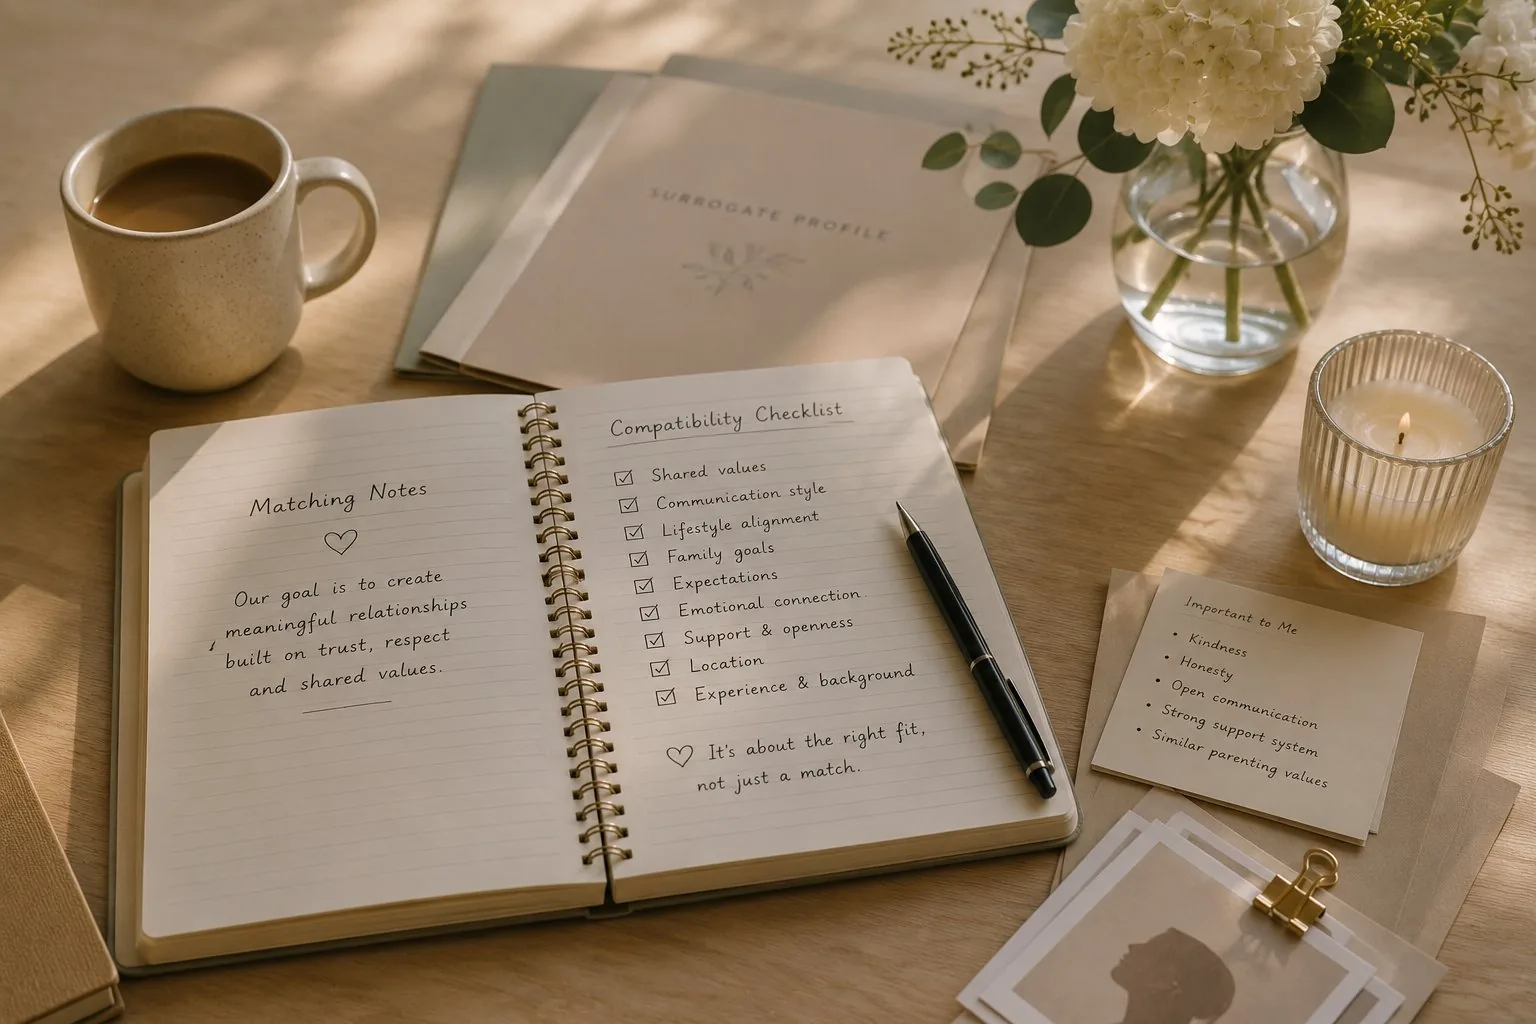 SURROGATE PROFILE
Matching Notes
Our goal is to create
meaningful relationships
built on trust, respect
and shared values.
Compatibility Checklist
Shared values
Communication style
Lifestyle alignment
Family goals
Expectations
Emotional connection.
Support & openness
Location
Experience & background
It's about the right fit,
not just a match.
Important to Me
• Kindness
• Honesty
• Open communication
• Strong support system
• Similar parenting values